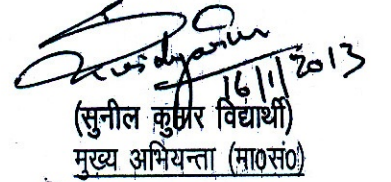 16/1/2013
(सुनील कुमार विद्यार्थी)
मुख्य अभियन्ता (मा0सं0)